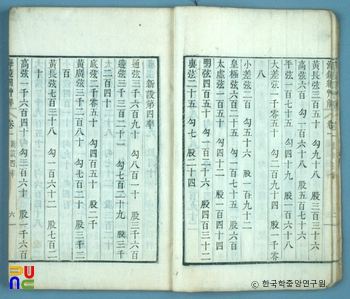 黃長弦三百五十 勾九十八 股三百三十六
高弦六百 勾一百六十八 股五百七十六
平弦一百七十五 勾四十九 股一百六十八
大差弦一千零五十 勾二百九十四 股一千零
八
小差弦二百 勾五十六 股一百九十二
皇極弦六百二十五 勾一百七十五 股六百
太虛弦一百五十 勾四十二 股一百四十四
明弦四百五十 勾一百二十六 股四百三十二
叀弦二十五 勾七 股二十四
新設第四率
通弦三千六百九十 勾八百一十 股三千六百
邊弦三千三百二十一 勾七百二十九 股三千
二百四十
底弦二千零五十 勾四百五十 股二千
黃廣弦三千二百八十 勾七百二十 股三千二
百
黃長弦七百三十八 勾一百六十二 股七百二
十
高弦一千六百四十 勾三百六十 股一千六百
六
© 한국학중앙연구원